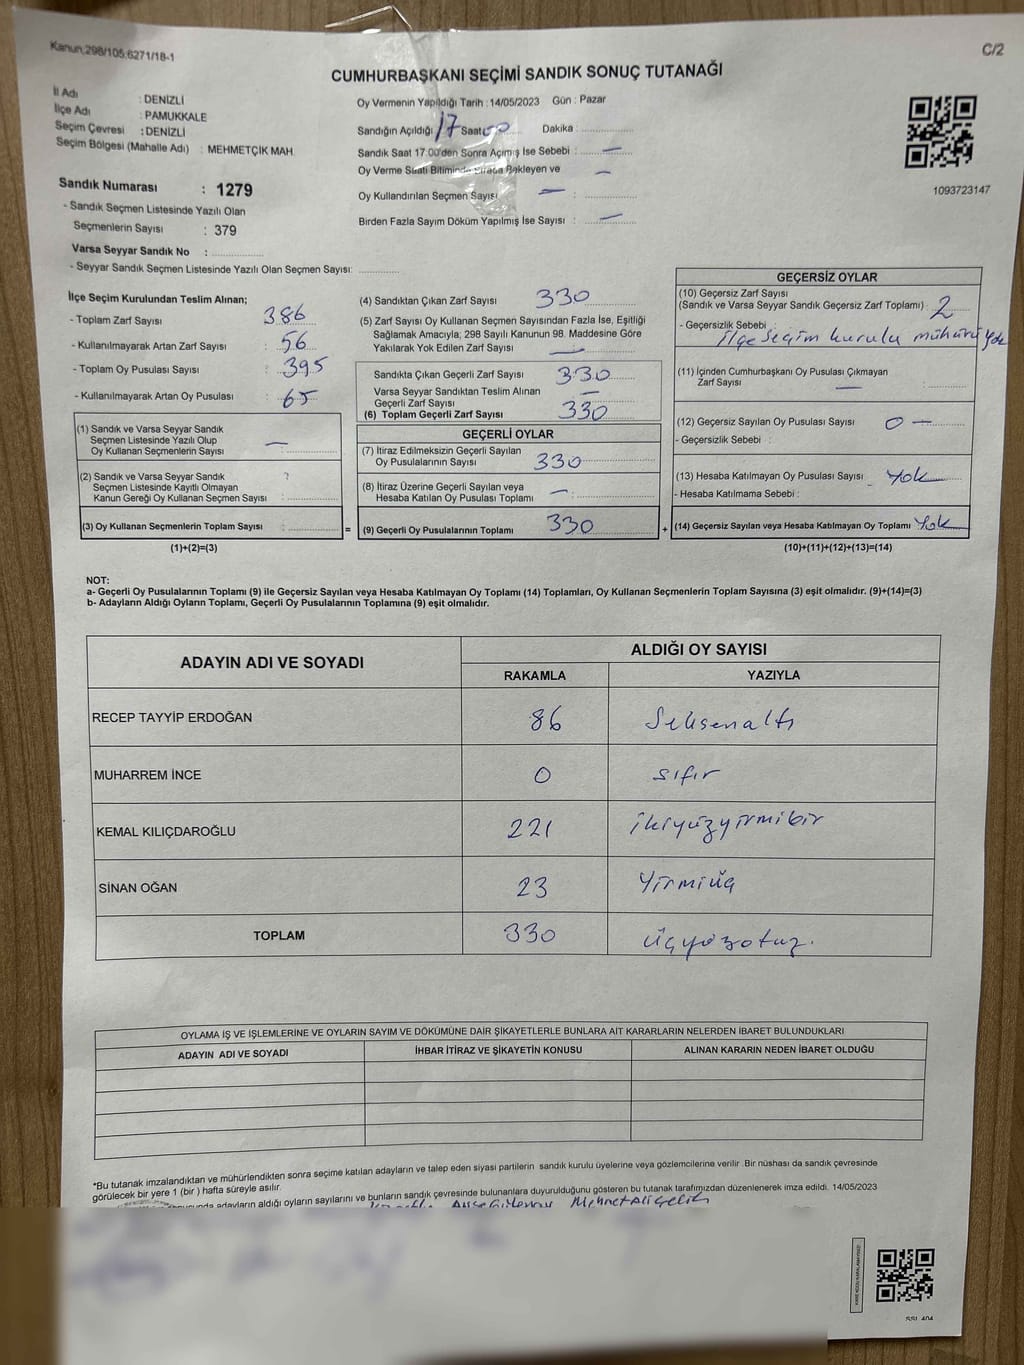 Kanun;298/105;6271/18-1
C/2
CUMHURBAŞKANI SEÇİMİ SANDIK SONUÇ TUTANAĞI
İl Adı : DENİZLİ
İlçe Adı : PAMUKKALE
Seçim Çevresi : DENİZLİ
Seçim Bölgesi (Mahalle Adı) : MEHMETÇİK MAH.
Sandık Numarası : 1279
- Sandık Seçmen Listesinde Yazılı Olan
Seçmenlerin Sayısı : 379
Varsa Seyyar Sandık No :
- Seyyar Sandık Seçmen Listesinde Yazılı Olan Seçmen Sayısı:
Oy Vermenin Yapıldığı Tarih : 14/05/2023 Gün : Pazar
Sandığın Açıldığı 17 Saat 00 Dakika
Sandık Saat 17.00'den Sonra Açılmış İse Sebebi : —
Oy Verme Süresi Bitiminde Sırada Bekleyen ve —
Oy Kullandırılan Seçmen Sayısı — :
Birden Fazla Sayım Döküm Yapılmış İse Sayısı : —
1093723147
İlçe Seçim Kurulundan Teslim Alınan;
- Toplam Zarf Sayısı : 386
- Kullanılmayarak Artan Zarf Sayısı : 56
- Toplam Oy Pusulası Sayısı : 395
- Kullanılmayarak Artan Oy Pusulası : 65
(1) Sandık ve Varsa Seyyar Sandık
Seçmen Listesinde Yazılı Olup
Oy Kullanan Seçmenlerin Sayısı : —
(2) Sandık ve Varsa Seyyar Sandık
Seçmen Listesinde Kayıtlı Olmayan
Kanun Gereği Oy Kullanan Seçmen Sayısı :
(3) Oy Kullanan Seçmenlerin Toplam Sayısı :
(1)+(2)=(3)
(4) Sandıktan Çıkan Zarf Sayısı 330
(5) Zarf Sayısı Oy Kullanan Seçmen Sayısından Fazla İse, Eşitliği
Sağlamak Amacıyla; 298 Sayılı Kanunun 98. Maddesine Göre
Yakılarak Yok Edilen Zarf Sayısı —
Sandıkta Çıkan Geçerli Zarf Sayısı 330
Varsa Seyyar Sandıktan Teslim Alınan
Geçerli Zarf Sayısı —
(6) Toplam Geçerli Zarf Sayısı 330
GEÇERLİ OYLAR
(7) İtiraz Edilmeksizin Geçerli Sayılan
Oy Pusulalarının Sayısı 330
(8) İtiraz Üzerine Geçerli Sayılan veya
Hesaba Katılan Oy Pusulası Toplamı —
= (9) Geçerli Oy Pusulalarının Toplamı 330 +
GEÇERSİZ OYLAR
(10) Geçersiz Zarf Sayısı
(Sandık ve Varsa Seyyar Sandık Geçersiz Zarf Toplamı) : 2
- Geçersizlik Sebebi :
İlçe seçim kurulu mühürü yok
(11) İçinden Cumhurbaşkanı Oy Pusulası Çıkmayan
Zarf Sayısı — :
(12) Geçersiz Sayılan Oy Pusulası Sayısı : 0 —
- Geçersizlik Sebebi :
(13) Hesaba Katılmayan Oy Pusulası Sayısı Yok
- Hesaba Katılmama Sebebi :
(14) Geçersiz Sayılan veya Hesaba Katılmayan Oy Toplamı Yok
(10)+(11)+(12)+(13)=(14)
NOT:
a- Geçerli Oy Pusulalarının Toplamı (9) ile Geçersiz Sayılan veya Hesaba Katılmayan Oy Toplamı (14) Toplamları, Oy Kullanan Seçmenlerin Toplam Sayısına (3) eşit olmalıdır. (9)+(14)=(3)
b- Adayların Aldığı Oyların Toplamı, Geçerli Oy Pusulalarının Toplamına (9) eşit olmalıdır.
ADAYIN ADI VE SOYADI
ALDIĞI OY SAYISI
RAKAMLA YAZIYLA
RECEP TAYYİP ERDOĞAN 86 Seksenaltı
MUHARREM İNCE 0 sıfır
KEMAL KILIÇDAROĞLU 221 ikiyüzyirmibir
SİNAN OĞAN 23 Yirmiüç
TOPLAM 330 üçyüzotuz.
OYLAMA İŞ VE İŞLEMLERİNE VE OYLARIN SAYIM VE DÖKÜMÜNE DAİR ŞİKAYETLERLE BUNLARA AİT KARARLARIN NELERDEN İBARET BULUNDUKLARI
ADAYIN ADI VE SOYADI İHBAR İTİRAZ VE ŞİKAYETİN KONUSU ALINAN KARARIN NEDEN İBARET OLDUĞU
*Bu tutanak imzalandıktan ve mühürlendikten sonra seçime katılan adayların ve talep eden siyasi partilerin sandık kurulu üyelerine veya gözlemcilerine verilir. Bir nüshası da sandık çevresinde
görülecek bir yere 1 (bir) hafta süreyle asılır.
adayların aldığı oyların sayılarını ve bunların sandık çevresinde bulunanlara duyurulduğunu gösteren bu tutanak tarafımızdan düzenlenerek imza edildi. 14/05/2023